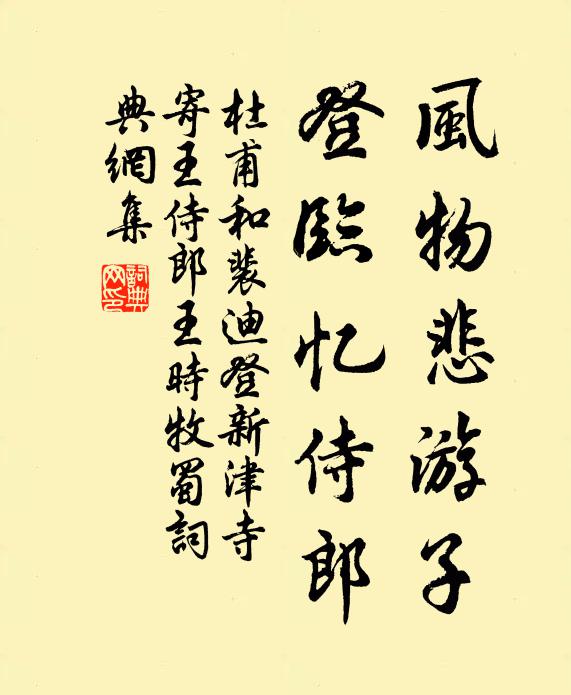 風物悲游子
登臨忆侍郎
杜甫和裴迪登新津寺
寄王侍郎王時牧蜀詞
典網集
詞典
网印